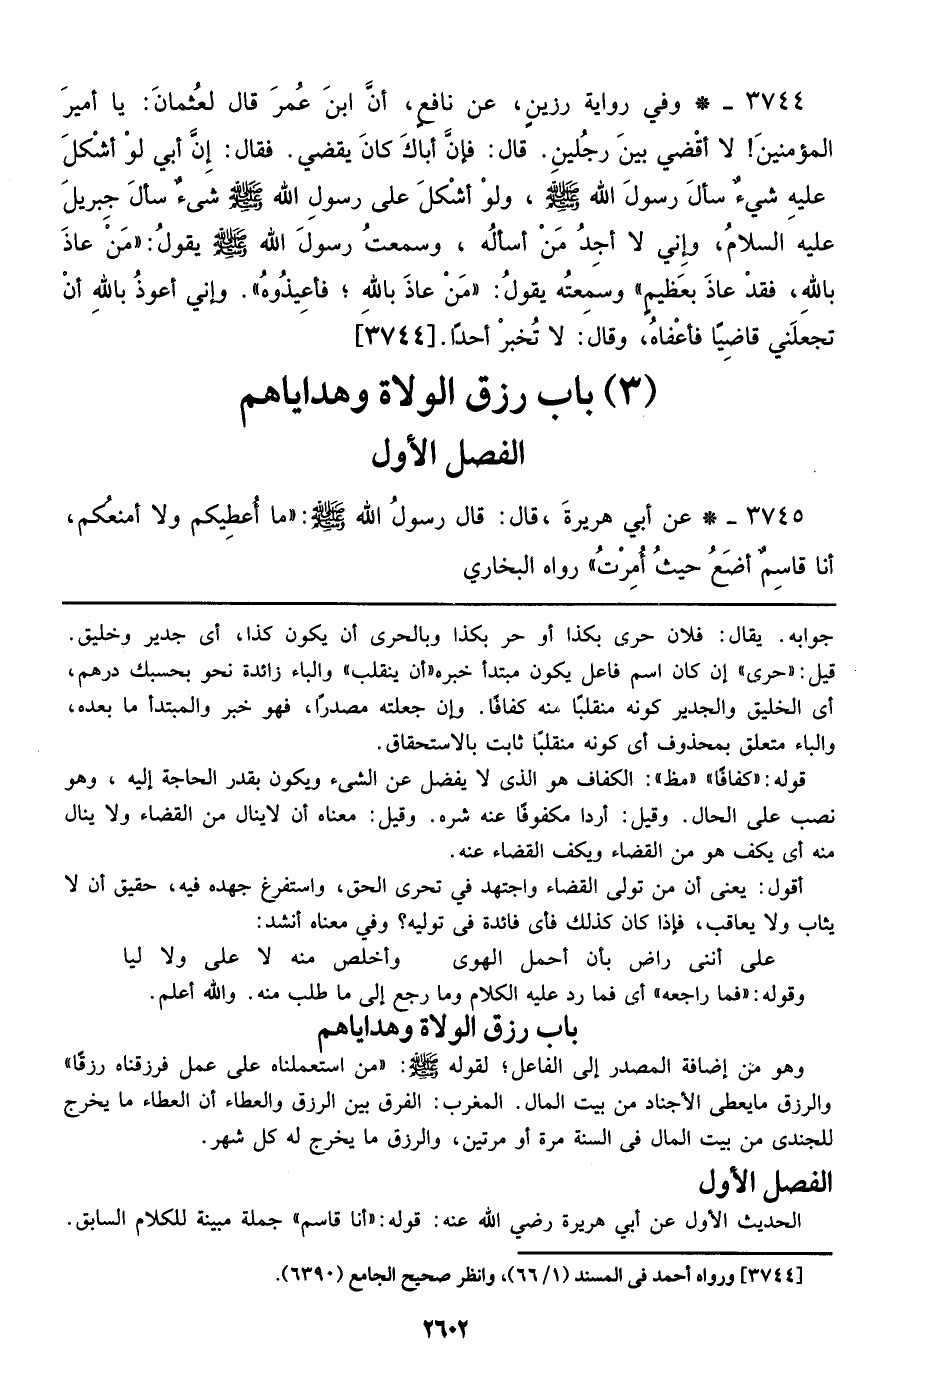 ٣٧٤٤ ـ * وفي رواية رزينٍ، عن نافعٍ، أنَّ ابنَ عُمرَ قال لعُثمانَ: يا أميرَ
المؤمنينَ! لا أقْضي بينَ رجُلينِ. قال: فإنَّ أباكَ كانَ يقضي. فقال: إنَّ أبي لوْ أشْكلَ
عليهِ شيءٌ سألَ رسولَ الله ﷺ ، ولوْ أشْكلَ على رسولِ الله ﷺ شىءٌ سألَ جبريلَ
عليه السلامُ، وإني لا أجِدُ مَنْ أسألُه ، وسمعتُ رسولَ الله ﷺ يقولُ:«مَنْ عاذَ
باللهِ، فقدْ عاذَ بعَظيمٍ» وسمعتُه يقولُ: «مَنْ عاذَ باللهِ ؛ فأعِيذُوهُ». وإني أعوذُ باللهِ أنْ
تجعلَني قاضِيًا فأعْفاهُ، وقال: لا تُخبرْ أحدًا.[٣٧٤٤]
(٣) باب رزق الولاة وهداياهم
الفصل الأول
٣٧٤٥ ـ * عن أبي هريرةَ ،قال: قال رسولُ الله ﷺ:«ما أُعطِيكم ولا أمنعُكم،
أنا قاسِمٌ أضَعُ حيثُ أُمِرْتُ» رواه البخاري
جوابه. يقال: فلان حرى بكذا أو حر بكذا وبالحرى أن يكون كذا، أى جدير وخليق.
قيل:«حرى» إن كان اسم فاعل يكون مبتدأ خبره«أن ينقلب» والباء زائدة نحو بحسبك درهم،
أى الخليق والجدير كونه منقلبًا منه كفافًا. وإن جعلته مصدرًا، فهو خبر والمبتدأ ما بعده،
والباء متعلق بمحذوف أى كونه منقلبًا ثابت بالاستحقاق.
قوله:«كفافًا» «مظ»: الكفاف هو الذى لا يفضل عن الشىء ويكون بقدر الحاجة إليه ، وهو
نصب على الحال. وقيل: أردا مكفوفًا عنه شره. وقيل: معناه أن لاينال من القضاء ولا ينال
منه أى يكف هو من القضاء ويكف القضاء عنه.
أقول: يعنى أن من تولى القضاء واجتهد في تحرى الحق، واستفرغ جهده فيه، حقيق أن لا
يثاب ولا يعاقب، فإذا كان كذلك فأى فائدة فى توليه؟ وفي معناه أنشد:
على أننى راض بأن أحمل الهوى وأخلص منه لا على ولا ليا
وقوله:«فما راجعه» أى فما رد عليه الكلام وما رجع إلى ما طلب منه. والله أعلم.
باب رزق الولاة وهداياهم
وهو من إضافة المصدر إلى الفاعل؛ لقوله ﷺ: «من استعملناه على عمل فرزقناه رزقًا»
والرزق مايعطى الأجناد من بيت المال. المغرب: الفرق بين الرزق والعطاء أن العطاء ما يخرج
للجندى من بيت المال فى السنة مرة أو مرتين، والرزق ما يخرج له كل شهر.
الفصل الأول
الحديث الأول عن أبي هريرة رضي الله عنه: قوله:«أنا قاسم» جملة مبينة للكلام السابق.
[٣٧٤٤] ورواه أحمد فى المسند (١/ ٦٦)، وانظر صحيح الجامع (٦٣٩٠).
٢٦٠٢